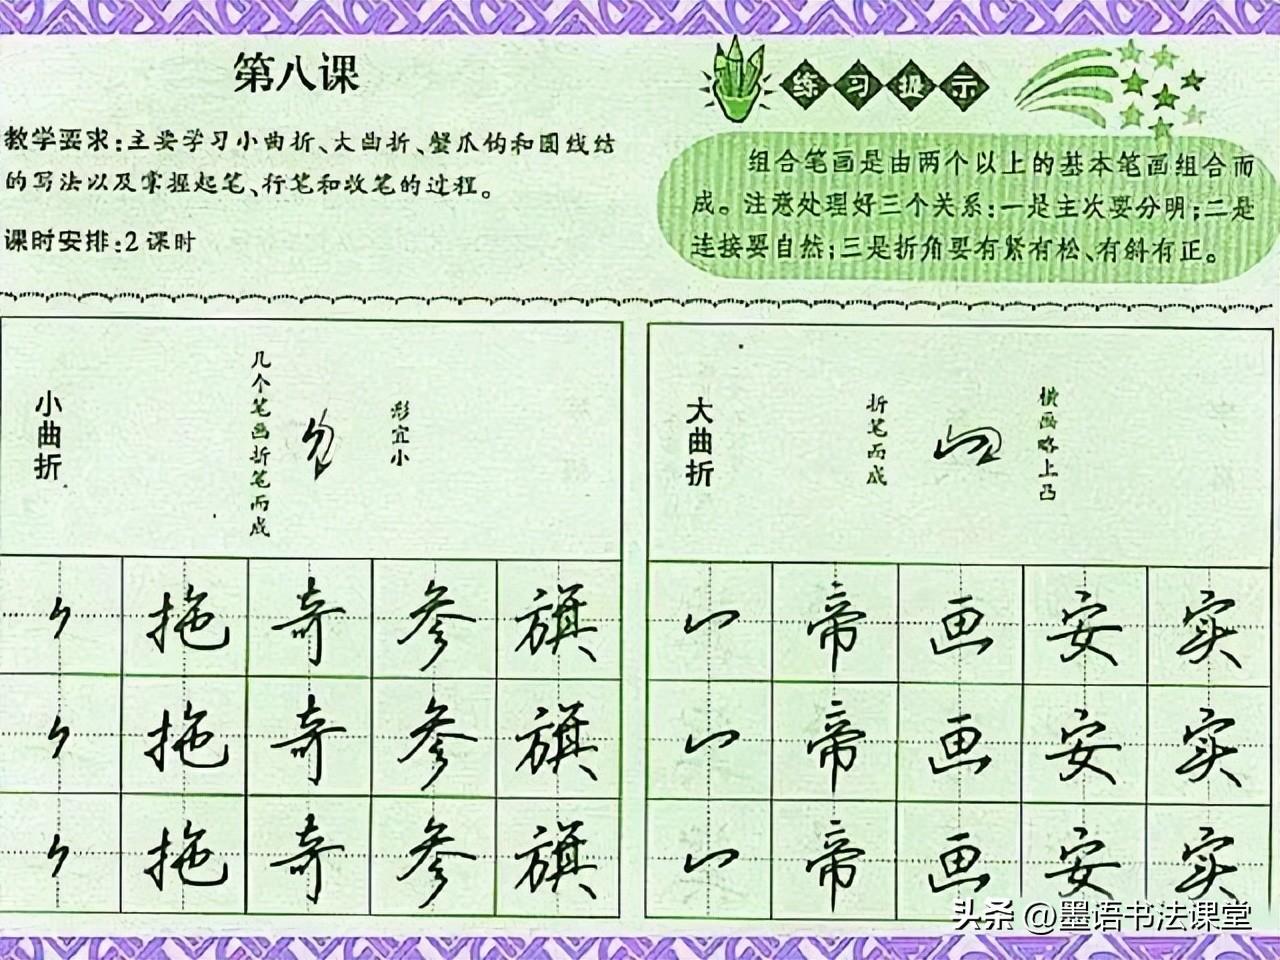 第八课
教学要求:主要学习小曲折、大曲折、蟹爪钩和圆线结
的写法以及掌握起笔、行笔和收笔的过程。
课时安排:2课时
练习提示
组合笔画是由两个以上的基本笔画组合而
成。注意处理好三个关系:一是主次要分明;二是
连接要自然;三是折角要有紧有松、有斜有正。
小曲折
几个笔画折笔而成
形宜小
拖 奇 参 旗
拖 奇 参 旗
拖 奇 参 旗
大曲折
折笔而成
横画略上凸
帝 画 安 实
帝 画 安 实
帝 画 安 实
头条 @墨语书法课堂